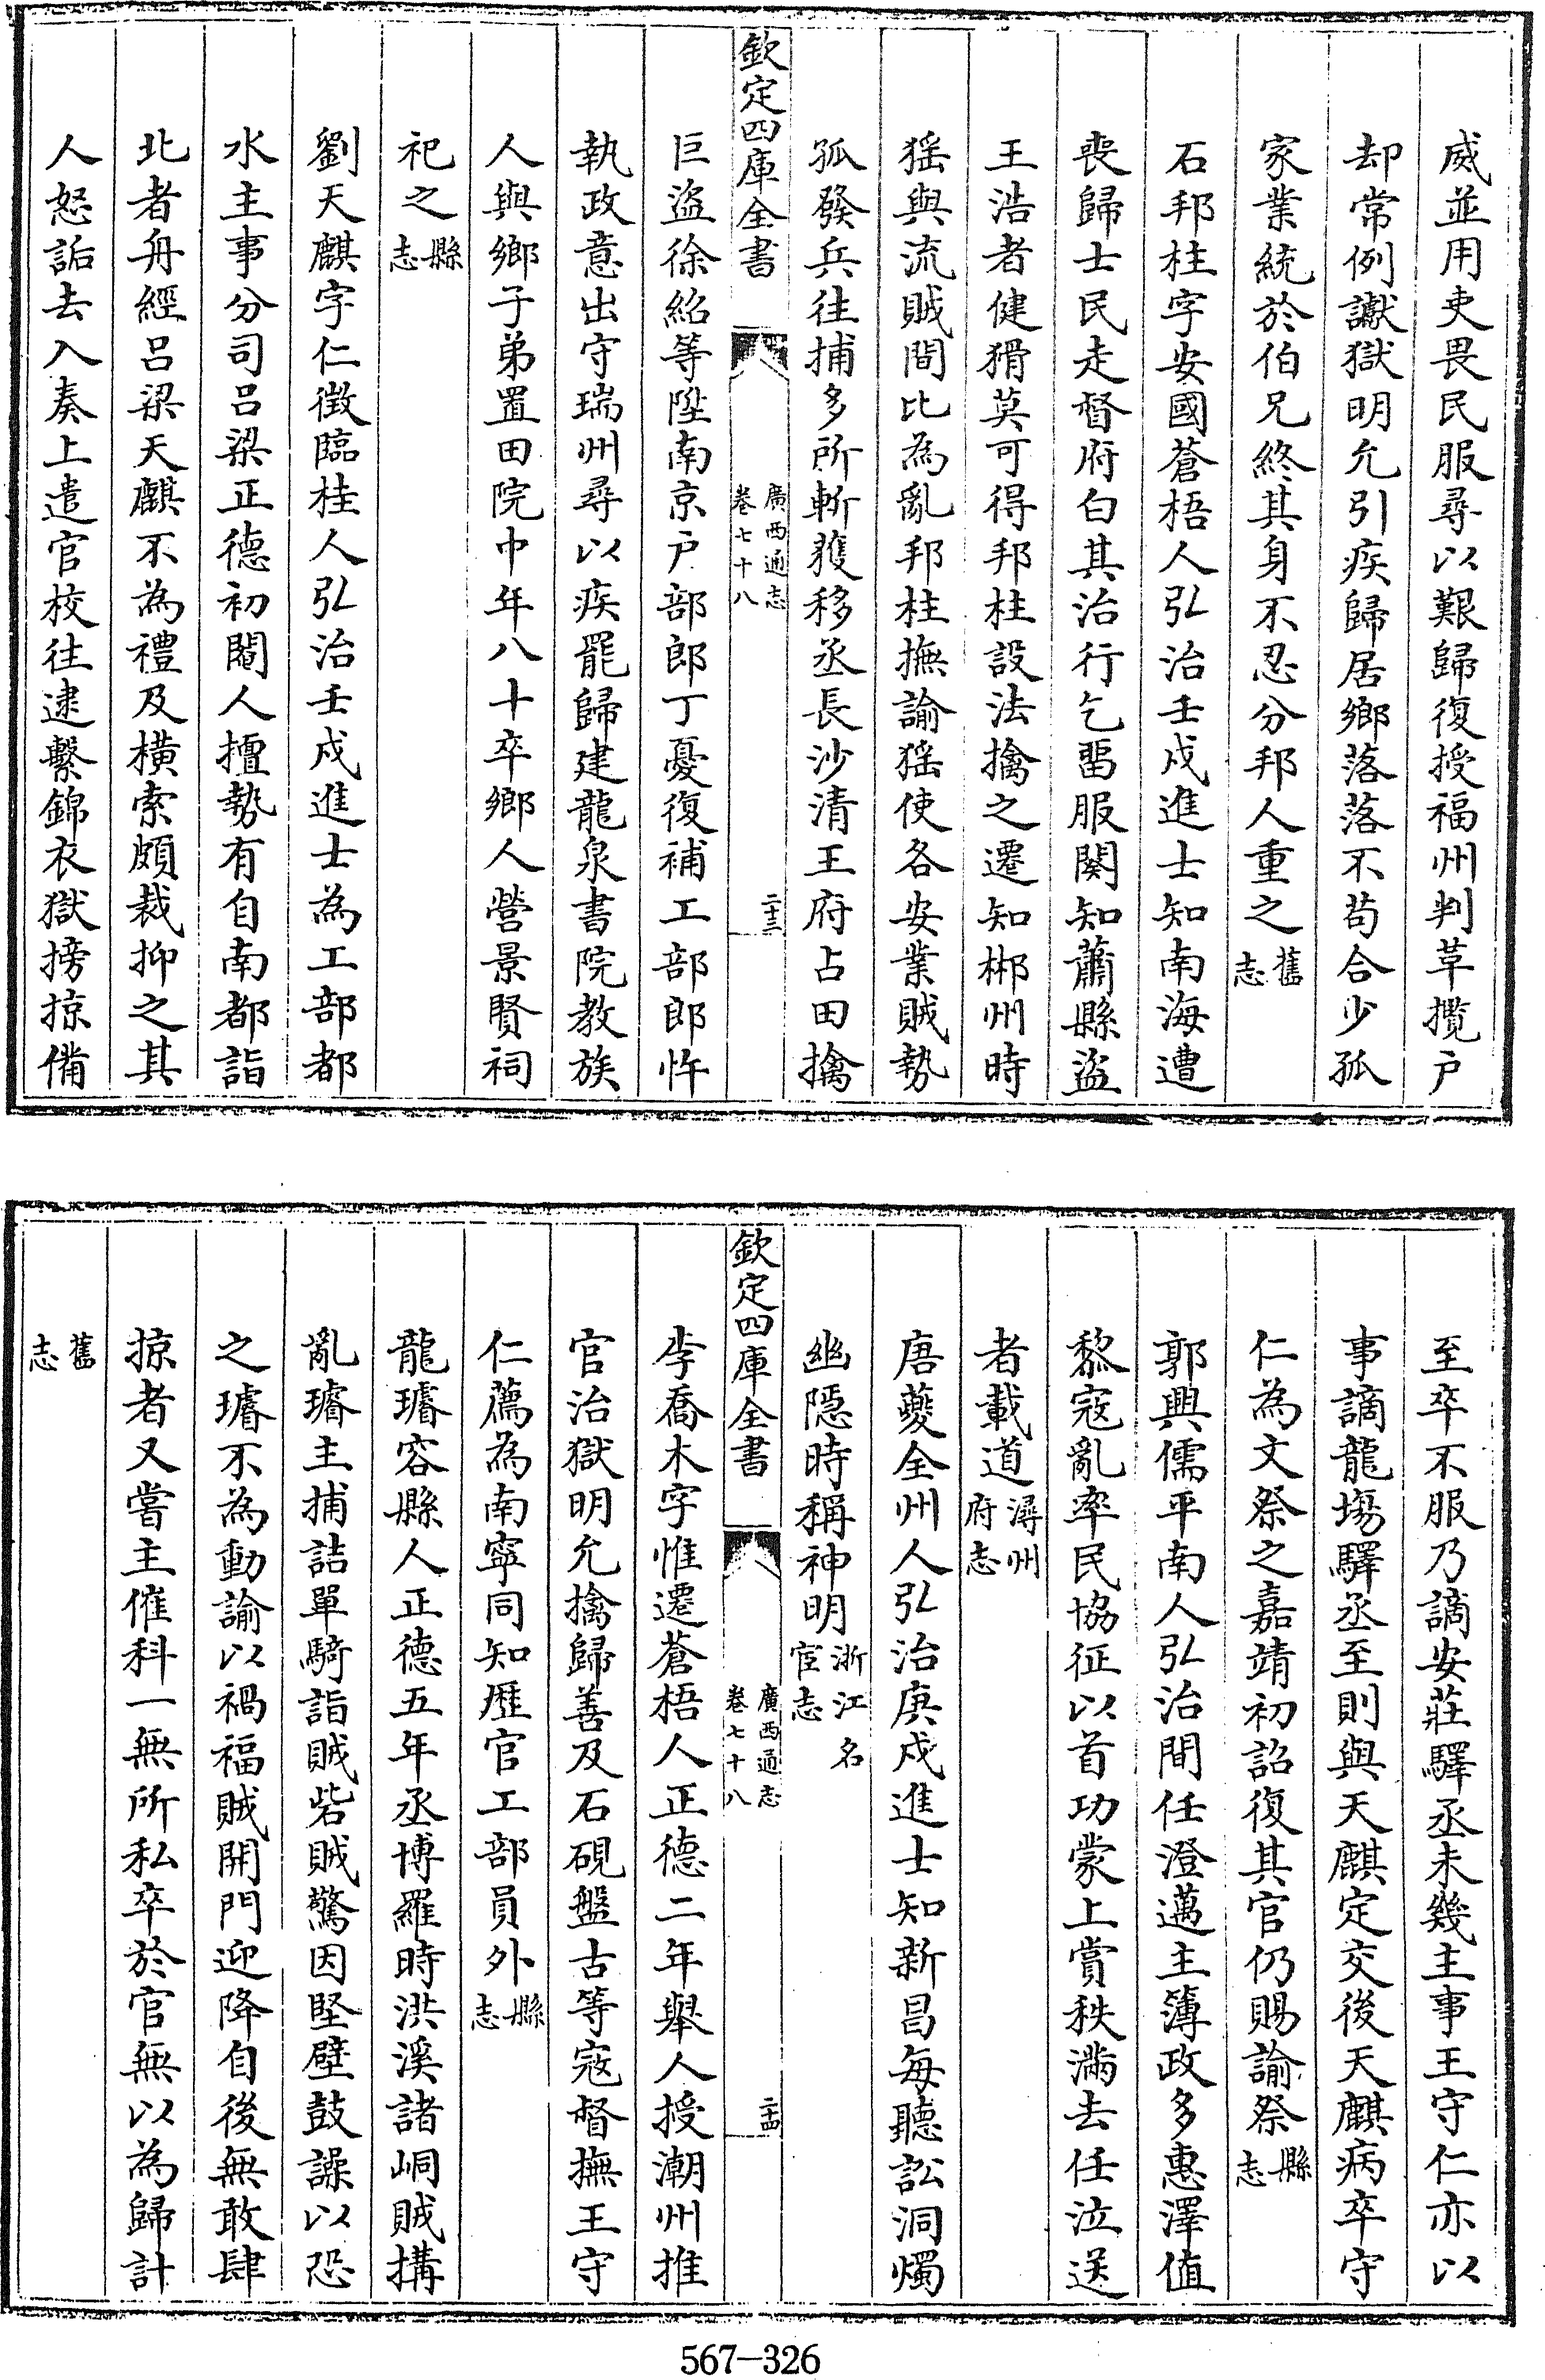 威並用吏畏民服尋以艱歸復授福州判革攬戶
却常例讞獄明允引疾歸居鄉落落不苟合少孤
家業統於伯兄終其身不忍分邦人重之舊志
石邦柱字安國蒼梧人弘治壬戌進士知南海遭
喪歸士民走督府白其治行乞畱服闋知蕭縣盜
王浩者健猾莫可得邦柱設法擒之遷知郴州時
猺與流賊間比為亂邦柱撫諭猺使各安業賊勢
孤發兵往捕多所斬獲移丞長沙清王府占田擒
欽定四庫全書 廣西通志 卷七十八 二十三
巨盜徐紹等陞南京户部郎丁憂復補工部郎忤
執政意出守瑞州尋以疾罷歸建龍泉書院教族
人與鄉子弟置田院中年八十卒鄉人營景賢祠
祀之縣志
劉天麒字仁徵臨桂人弘治壬戌進士為工部都
水主事分司呂梁正德初閹人擅勢有自南都詣
北者舟經呂梁天麒不為禮及橫索頗裁抑之其
人怒詬去入奏上遣官校往逮繫錦衣獄搒掠備
至卒不服乃謫安莊驛丞未幾主事王守仁亦以
事謫龍塲驛丞至則與天麒定交後天麒病卒守
仁為文祭之嘉靖初詔復其官仍賜諭祭縣志
郭興儒平南人弘治間任澄邁主簿政多惠澤值
黎寇亂率民協征以首功蒙上賞秩滿去任泣送
者載道潯州府志
唐夔全州人弘治庚戌進士知新昌每聽訟洞燭
幽隱時稱神明浙江名宦志
欽定四庫全書 廣西通志 卷七十八 二十四
李喬木字惟遷蒼梧人正德二年舉人授潮州推
官治獄明允擒歸善及石硯盤古等寇督撫王守
仁薦為南寧同知歷官工部員外縣志
龍璿容縣人正德五年丞博羅時洪溪諸峒賊搆
亂璿主捕詰單騎詣賊砦賊驚因堅壁鼓譟以恐
之璿不為動諭以禍福賊開門迎降自後無敢肆
掠者又嘗主催科一無所私卒於官無以為歸計
舊志
567—326